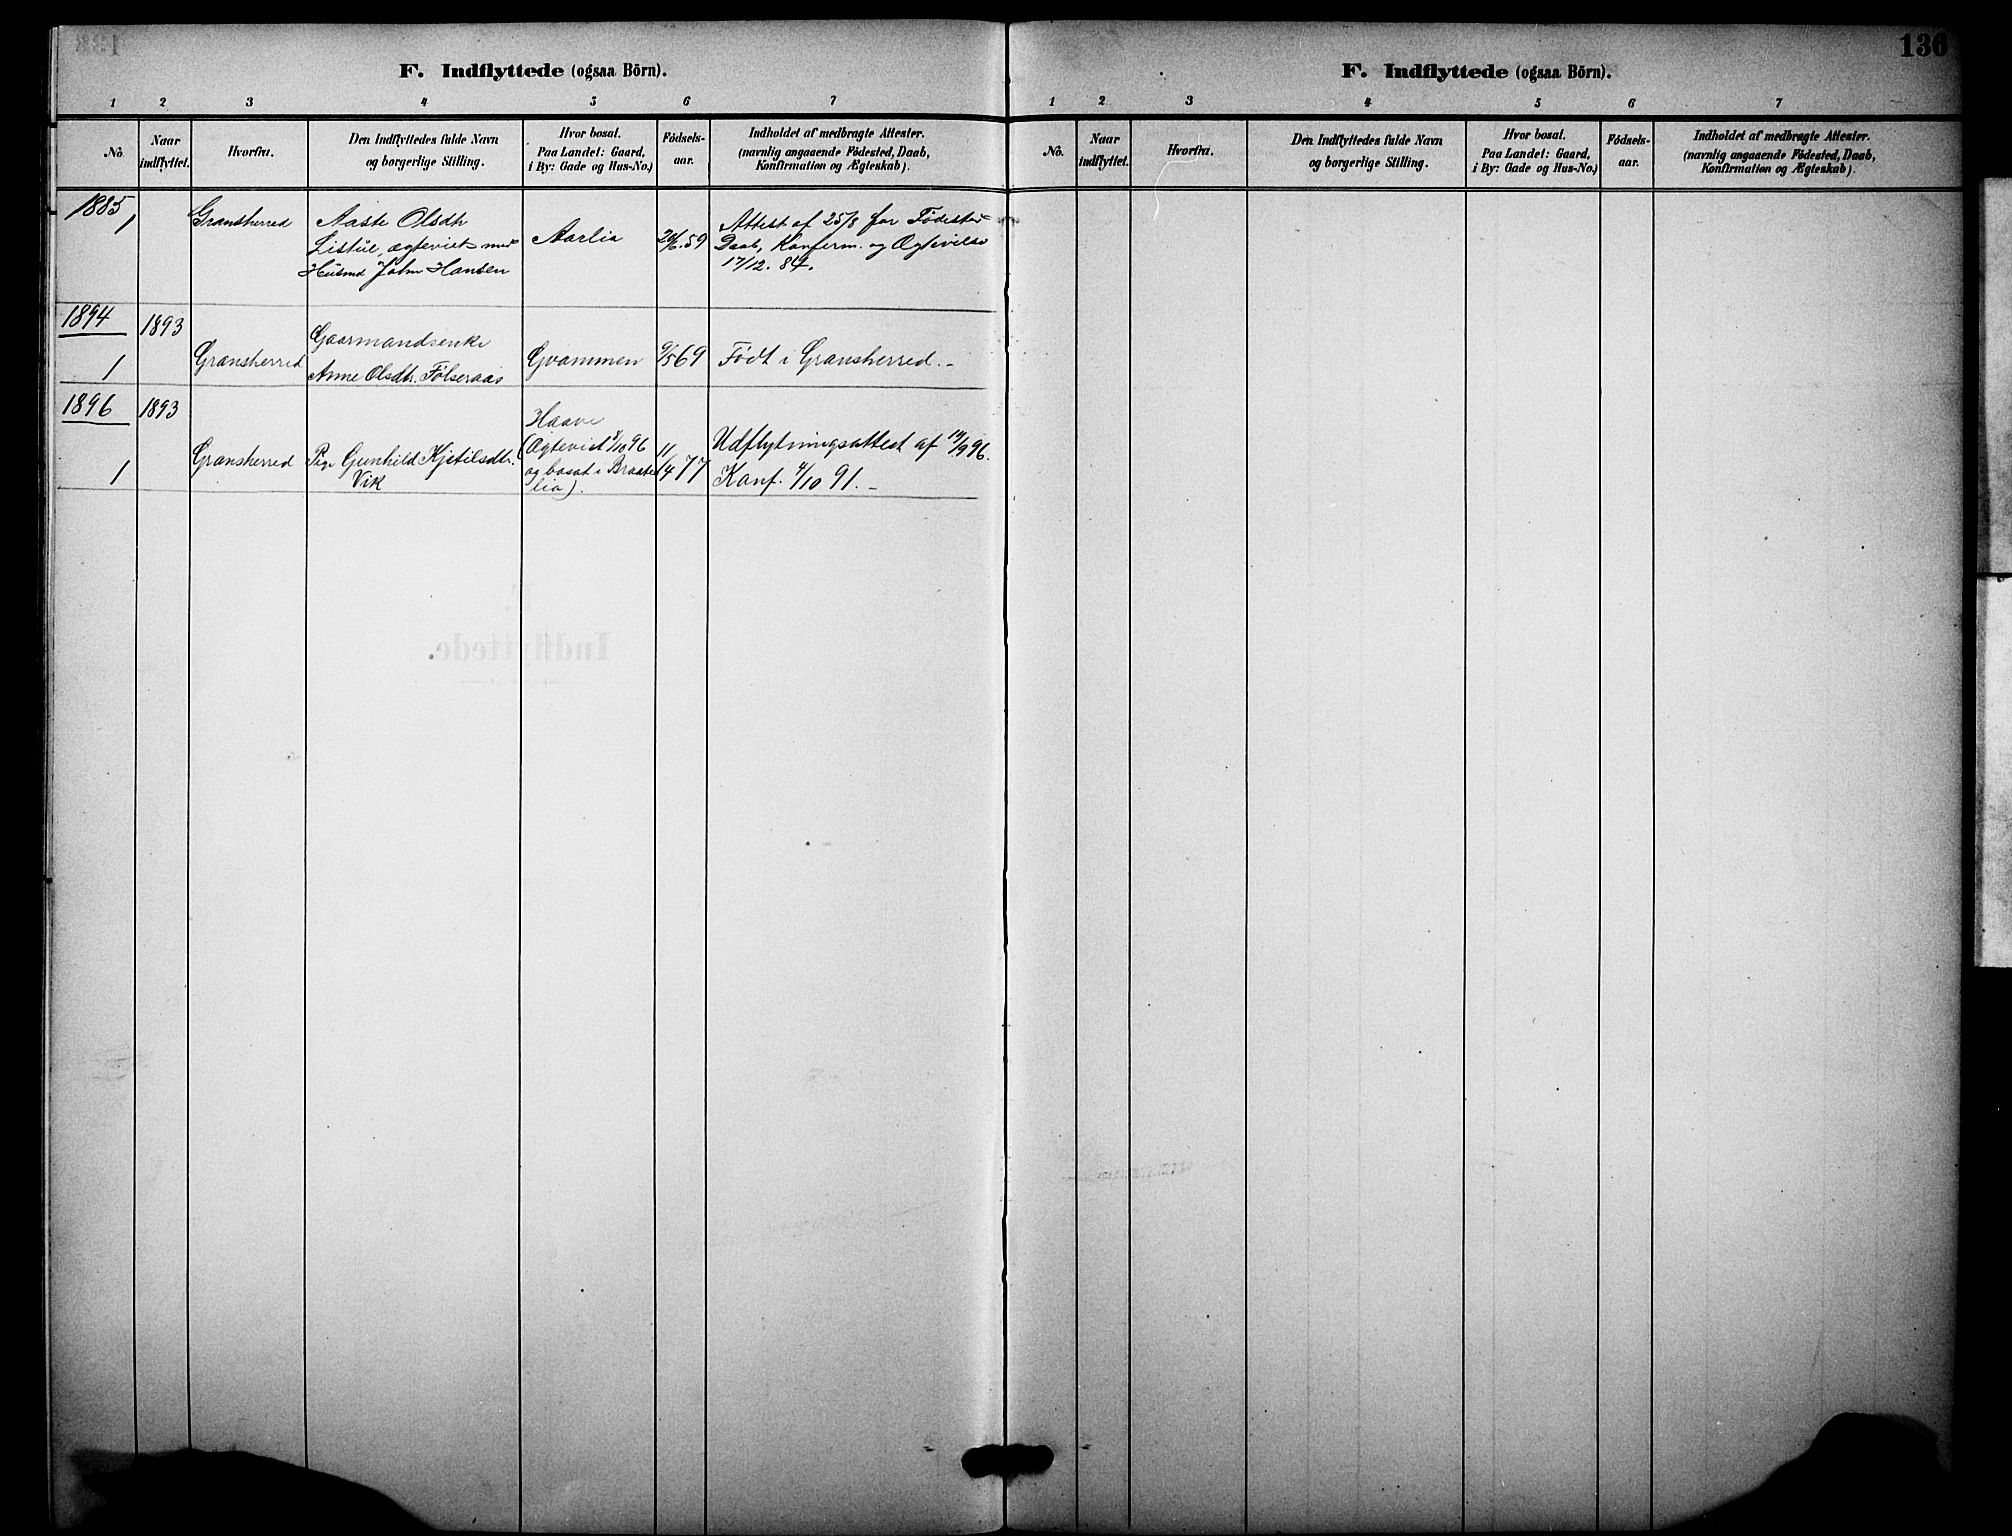 F. Indflyttede (ogsaa Börn).
1 2 3 4 5 6 7
No. Naar indflyttet. Hvorfra. Den Indflyttedes fulde Navn og borgerlige Stilling. Hvor bosat. Paa Landet: Gaard, i By: Gade og Hus-No.) Fødsels-aar. Indholdet af medbragte Attester. (navnlig angaaende Fødested, Daab, Konfirmation og Ægteskab).
1885
1 Gransherred Aaste Olsdtr
Listül, ægteviet med
Husmd John Hansen
Aarlia
59
Attest af 25/8 for Fødested
Daab, Konferm. og Ægtevielse
17/12. 84.
1894
1 1893 Gransherred
Gaarmandsenke
Anne Olsdtr. Følseraas
Gvammen
69
Født i Gransherred. -
1896
1 1893 Gransherred
Pige Gunhild Kjetilsdtr.
Vik
Haave
(Ægteviet 96
og bosat i
lia).
11/4 77
Udflytningsattest af 96.
Konf. 4/10 91. -
130
F. Indflyttede (ogsaa Börn).
1 2 3 4 5 6 7
No. Naar indflyttet. Hvorfra. Den Indflyttedes fulde Navn og borgerlige Stilling. Hvor bosat. Paa Landet: Gaard, i By: Gade og Hus-No.) Fødsels-aar. Indholdet af medbragte Attester. (navnlig angaaende Fødested, Daab, Konfirmation og Ægteskab).